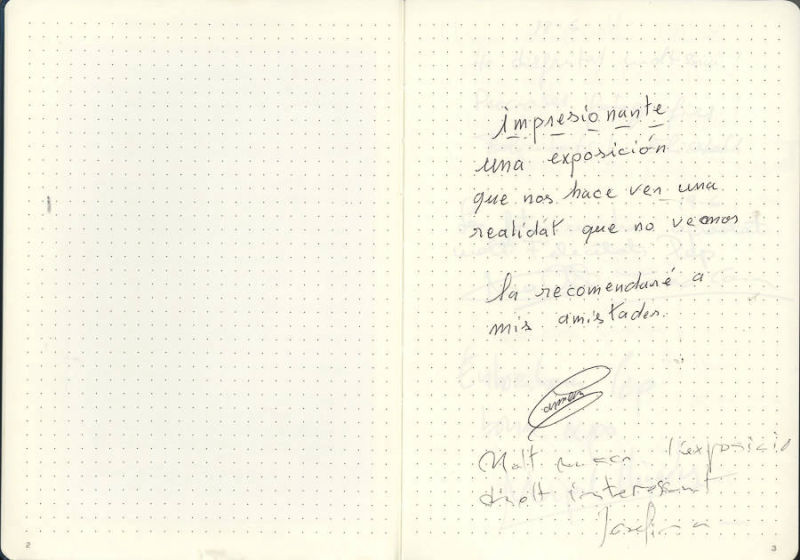 impresionante
una exposición
que nos hace ver una
realidát que no vemos
la recomendaré a
mis amistades.
Molt l'exposicio
molt interesant
Josefina
2
3